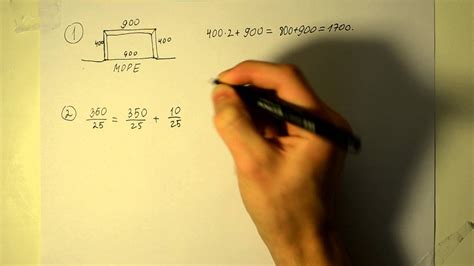 1 900
400 400 400·2+900 = 800+900=1700.
900
МОРЕ
2 360/25 = 350/25 + 10/25